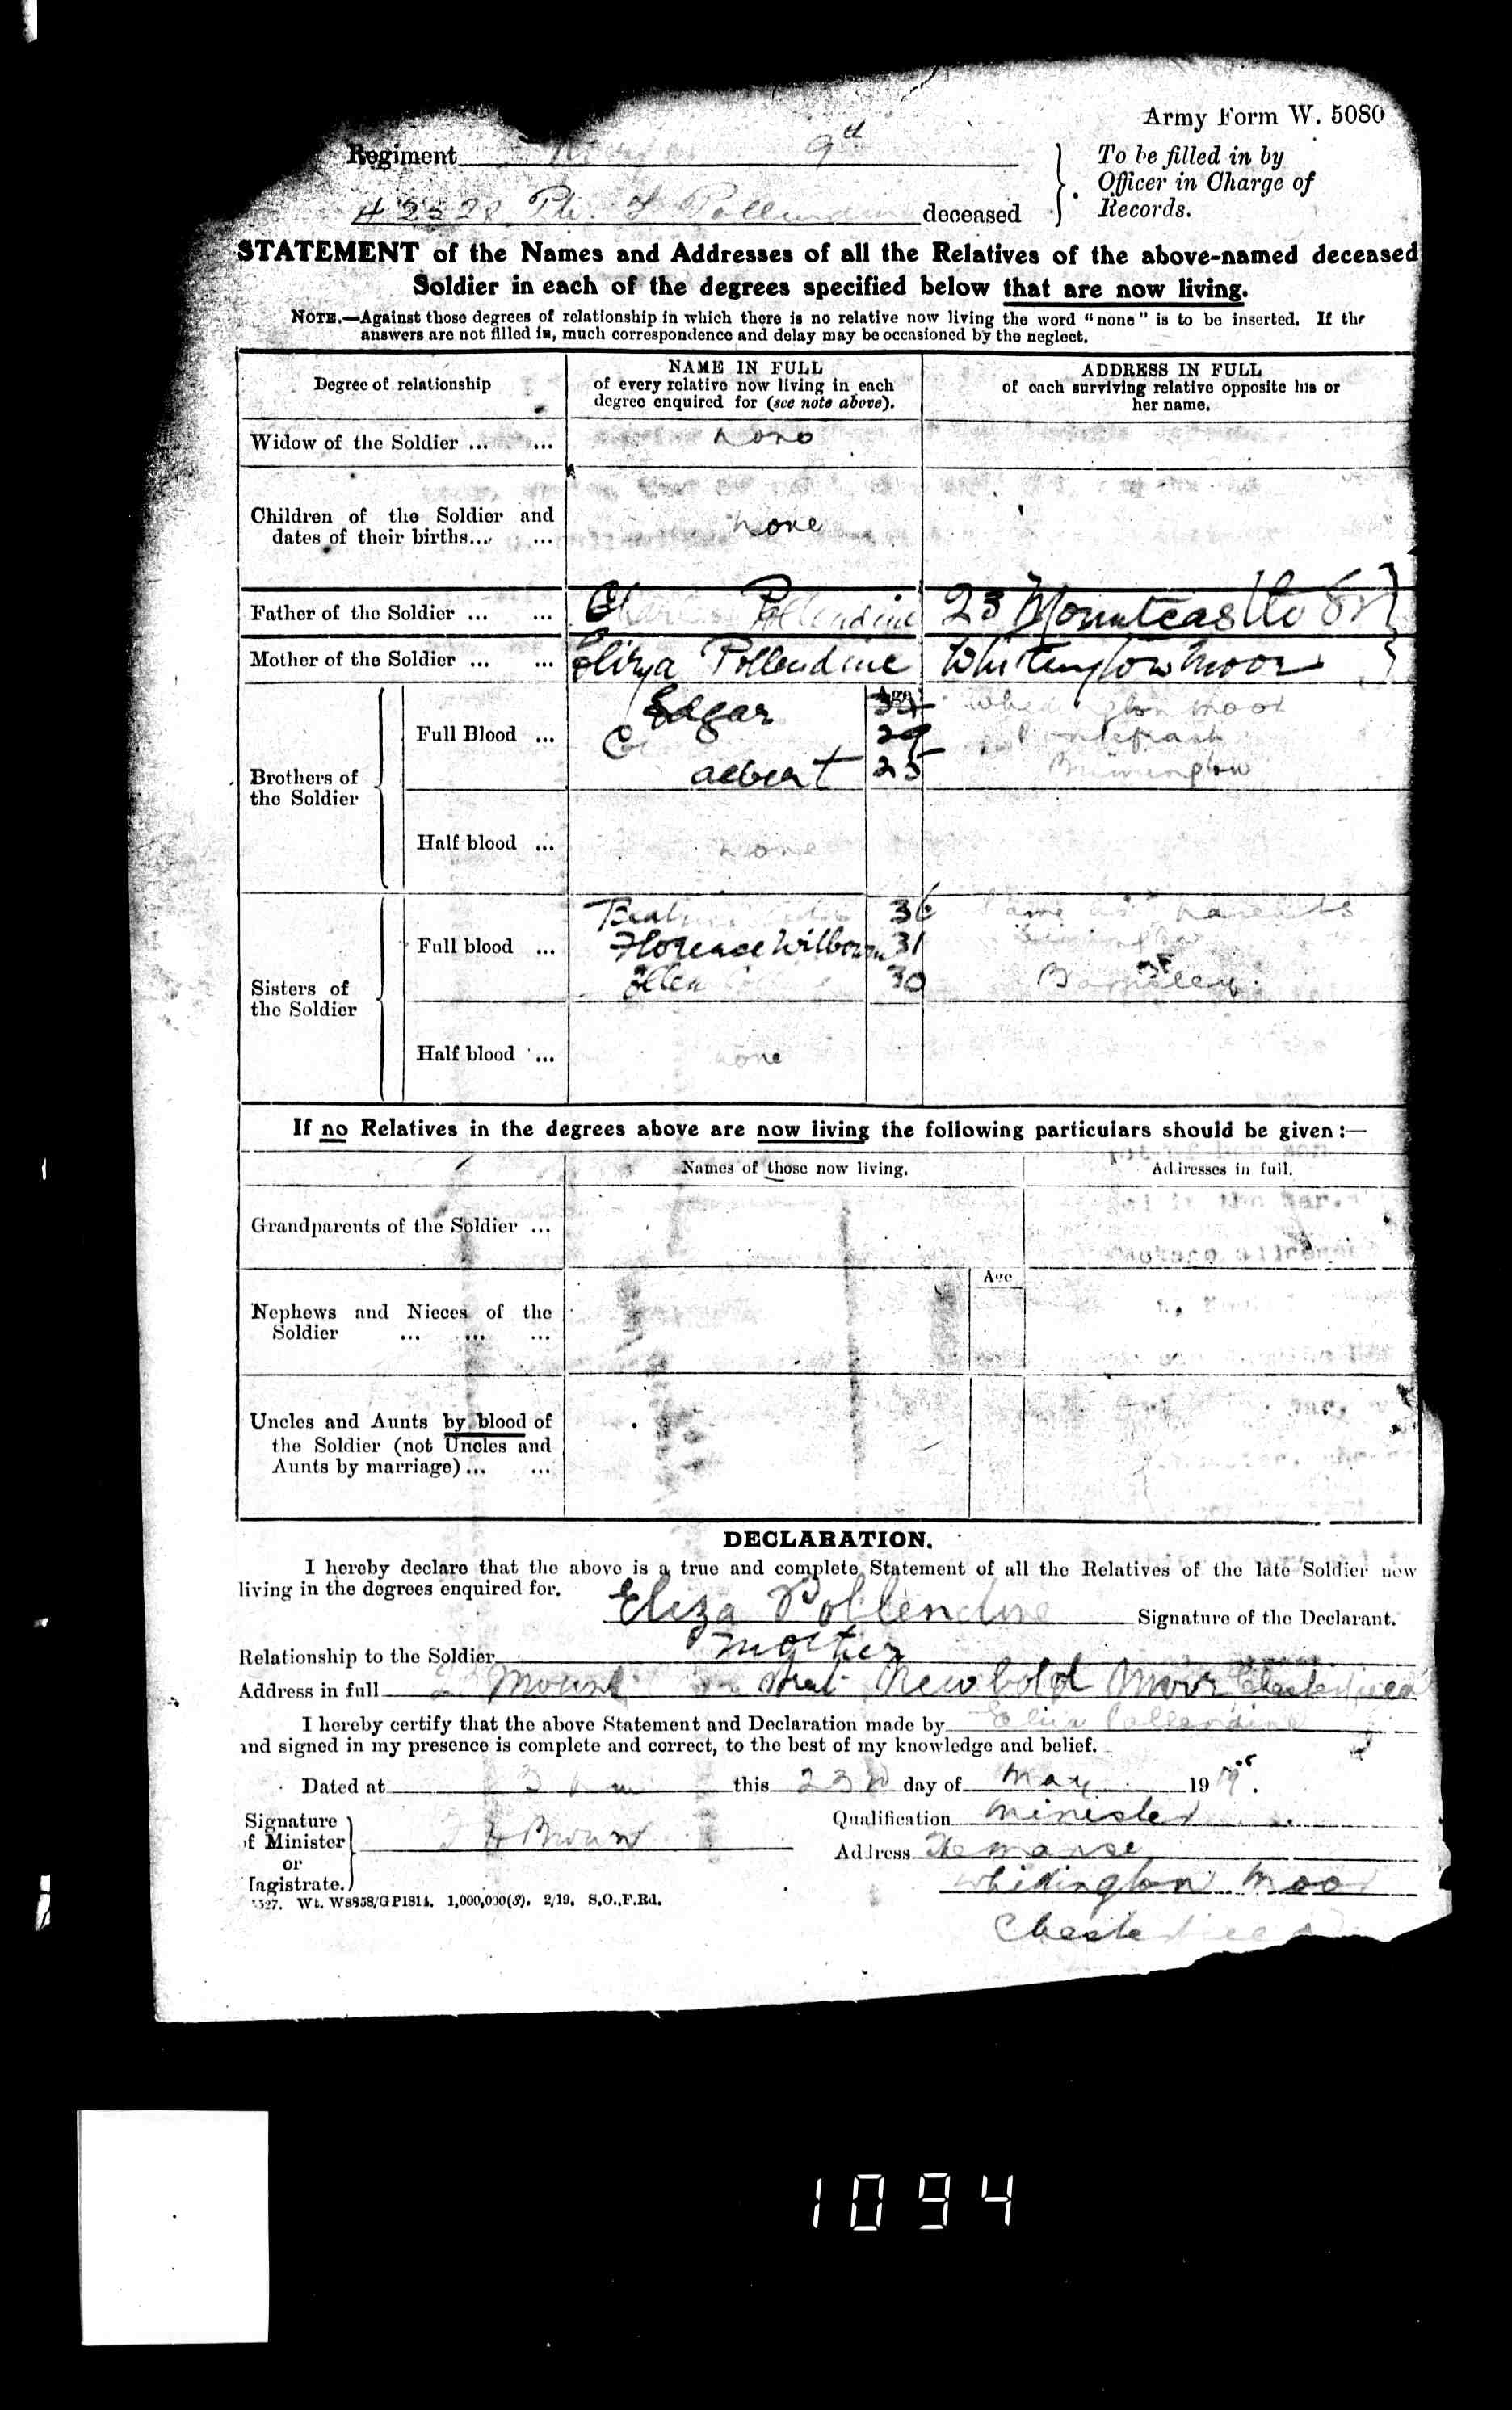 Army Form W. 5080
Regiment 9th
To be filled in by
Officer in Charge of
Records.
Pte. Pollendine deceased
STATEMENT of the Names and Addresses of all the Relatives of the above-named deceased
Soldier in each of the degrees specified below that are now living.
NOTE.—Against those degrees of relationship in which there is no relative now living the word "none" is to be inserted. If the
answers are not filled in, much correspondence and delay may be occasioned by the neglect.
Degree of relationship
NAME IN FULL
of every relative now living in each
degree enquired for (see note above).
ADDRESS IN FULL
of each surviving relative opposite his or
her name.
Widow of the Soldier ... ... none
Children of the Soldier and
dates of their births... ... none
Father of the Soldier ... ... Charles Pollendine 23 Mountcastle St
Mother of the Soldier ... ... Eliza Pollendine Whitington Moor
Brothers of
the Soldier
Full Blood ...
Age
Edgar Moor
29 Pontefract
albert 25 Brimington
Half blood ... none
Sisters of
the Soldier
Full blood ...
36 Same as parents
Florence Wilbourn 31
Ellen 30 Barnsley
Half blood ... none
If no Relatives in the degrees above are now living the following particulars should be given:—
Names of those now living.
Addresses in full.
Grandparents of the Soldier ...
Age
Nephews and Nieces of the
Soldier ... ... ...
Uncles and Aunts by blood of
the Soldier (not Uncles and
Aunts by marriage) ... ...
DECLARATION.
I hereby declare that the above is a true and complete Statement of all the Relatives of the late Soldier now
living in the degrees enquired for.
Eliza Pollendine Signature of the Declarant.
Relationship to the Soldier Mother
Address in full Mount Street Newbold Moor Chesterfield
I hereby certify that the above Statement and Declaration made by Eliza Pollendine
and signed in my presence is complete and correct, to the best of my knowledge and belief.
Dated at this 23rd day of May 1919.
Signature
of Minister
or
Magistrate.
Brown
Qualification Minister
Address The manse
Whittington Moor
Chesterfield
Wt. W8858/GP1814. 1,000,000(S). 2/19. S.O.,F.Rd.
1094